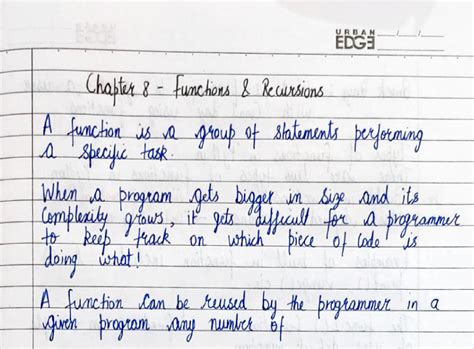 URBAN
EDGE
Chapter 8 - Functions & Recursions
A function is a group of statements performing
a specific task.
When a program gets bigger in size and its
complexity grows, it gets difficult for a programmer
to keep track on which piece of code is
doing what!
A function can be reused by the programmer in a
given program any number of